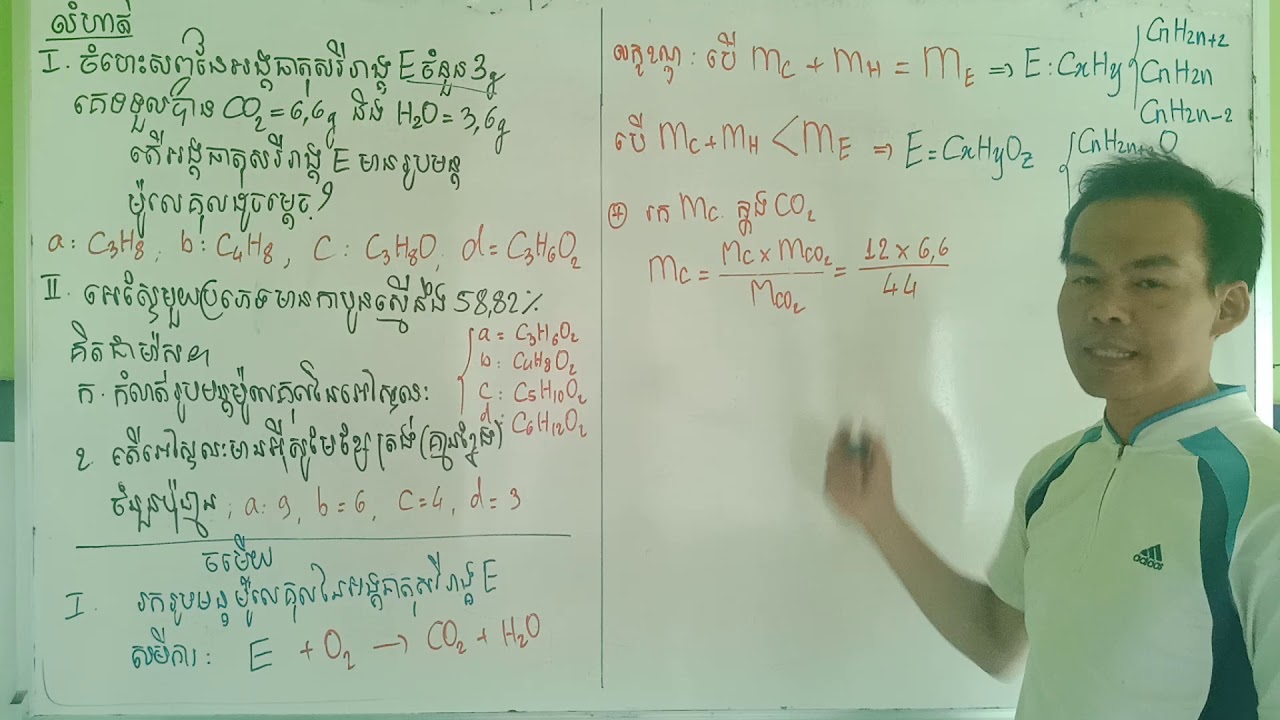 លំហាត់
I. ចំហេះសព្វនៃអង្គធាតុសរីរាង្គ E ចំនួន 3g
គេទទួលបាន CO₂ = 6,6g និង H₂O = 3,6g
តើអង្គធាតុសរីរាង្គ E មានរូបមន្ត
ម៉ូលេគុលដូចម្តេច?
a: C₃H₈, b: C₄H₈, c: C₃H₈O, d = C₃H₆O₂
II. អេស្ទែមួយប្រភេទមានកាបូនស្មើនឹង 58,82%
គិតជាម៉ាស។
ក. កំណត់រូបមន្តម៉ូលេគុលនៃអេស្ទែនេះ
a = C₃H₆O₂
b: C₄H₈O₂
c: C₅H₁₀O₂
d: C₆H₁₂O₂
ខ. តើអេស្ទែនេះមានអ៊ីសូមែខ្សែត្រង់ (គ្មានខ្នែង)
ចំនួនប៉ុន្មាន, a: 9, b = 6, c = 4, d = 3
ចម្លើយ
I. រករូបមន្តម៉ូលេគុលនៃអង្គធាតុសរីរាង្គ E
សមីការ: E + O₂ → CO₂ + H₂O
លក្ខខណ្ឌ: បើ mC + mH = mE ⇒ E: CxHy { CnH2n+2
CnH2n
CnH2n-2
បើ mC + mH < mE ⇒ E = CxHyOz {
⊕ រក mC ក្នុង CO₂
mC = MC × mCO₂ / MCO₂ = 12 × 6,6 / 44
adidas